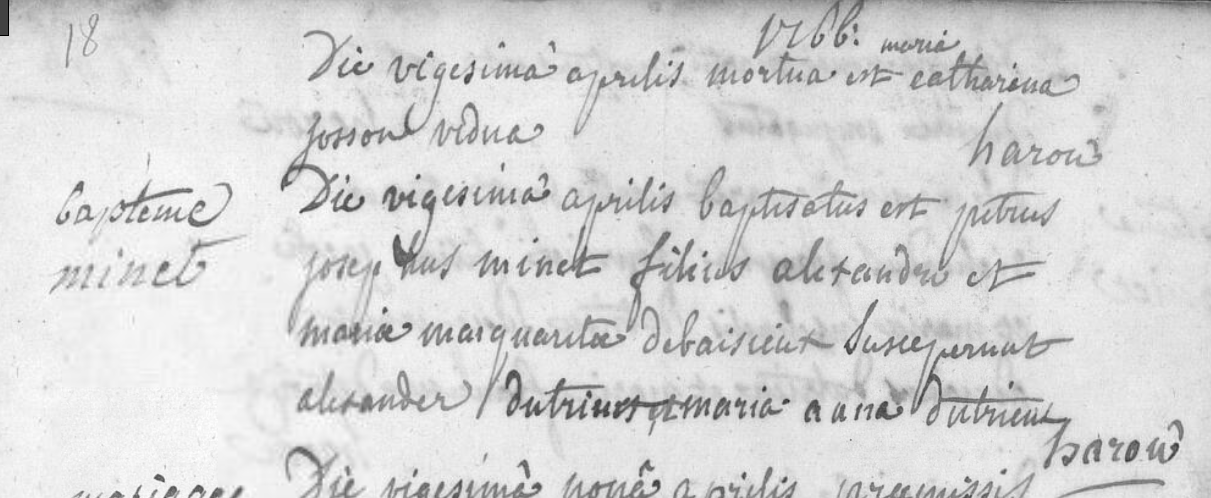 18
1766: maria
Die vigesimâ aprilis mortua est catharina
josson vidua
harou
Die vigesimâ aprilis baptisatus est petrus
baptême
josephus minet filius alexandri et
minet
mariæ marguaritæ debaisieux susceperunt
alexander dutrieux et maria anna dutrieux
harou
mariage
Die vigesimâ nonâ aprilis præmissis